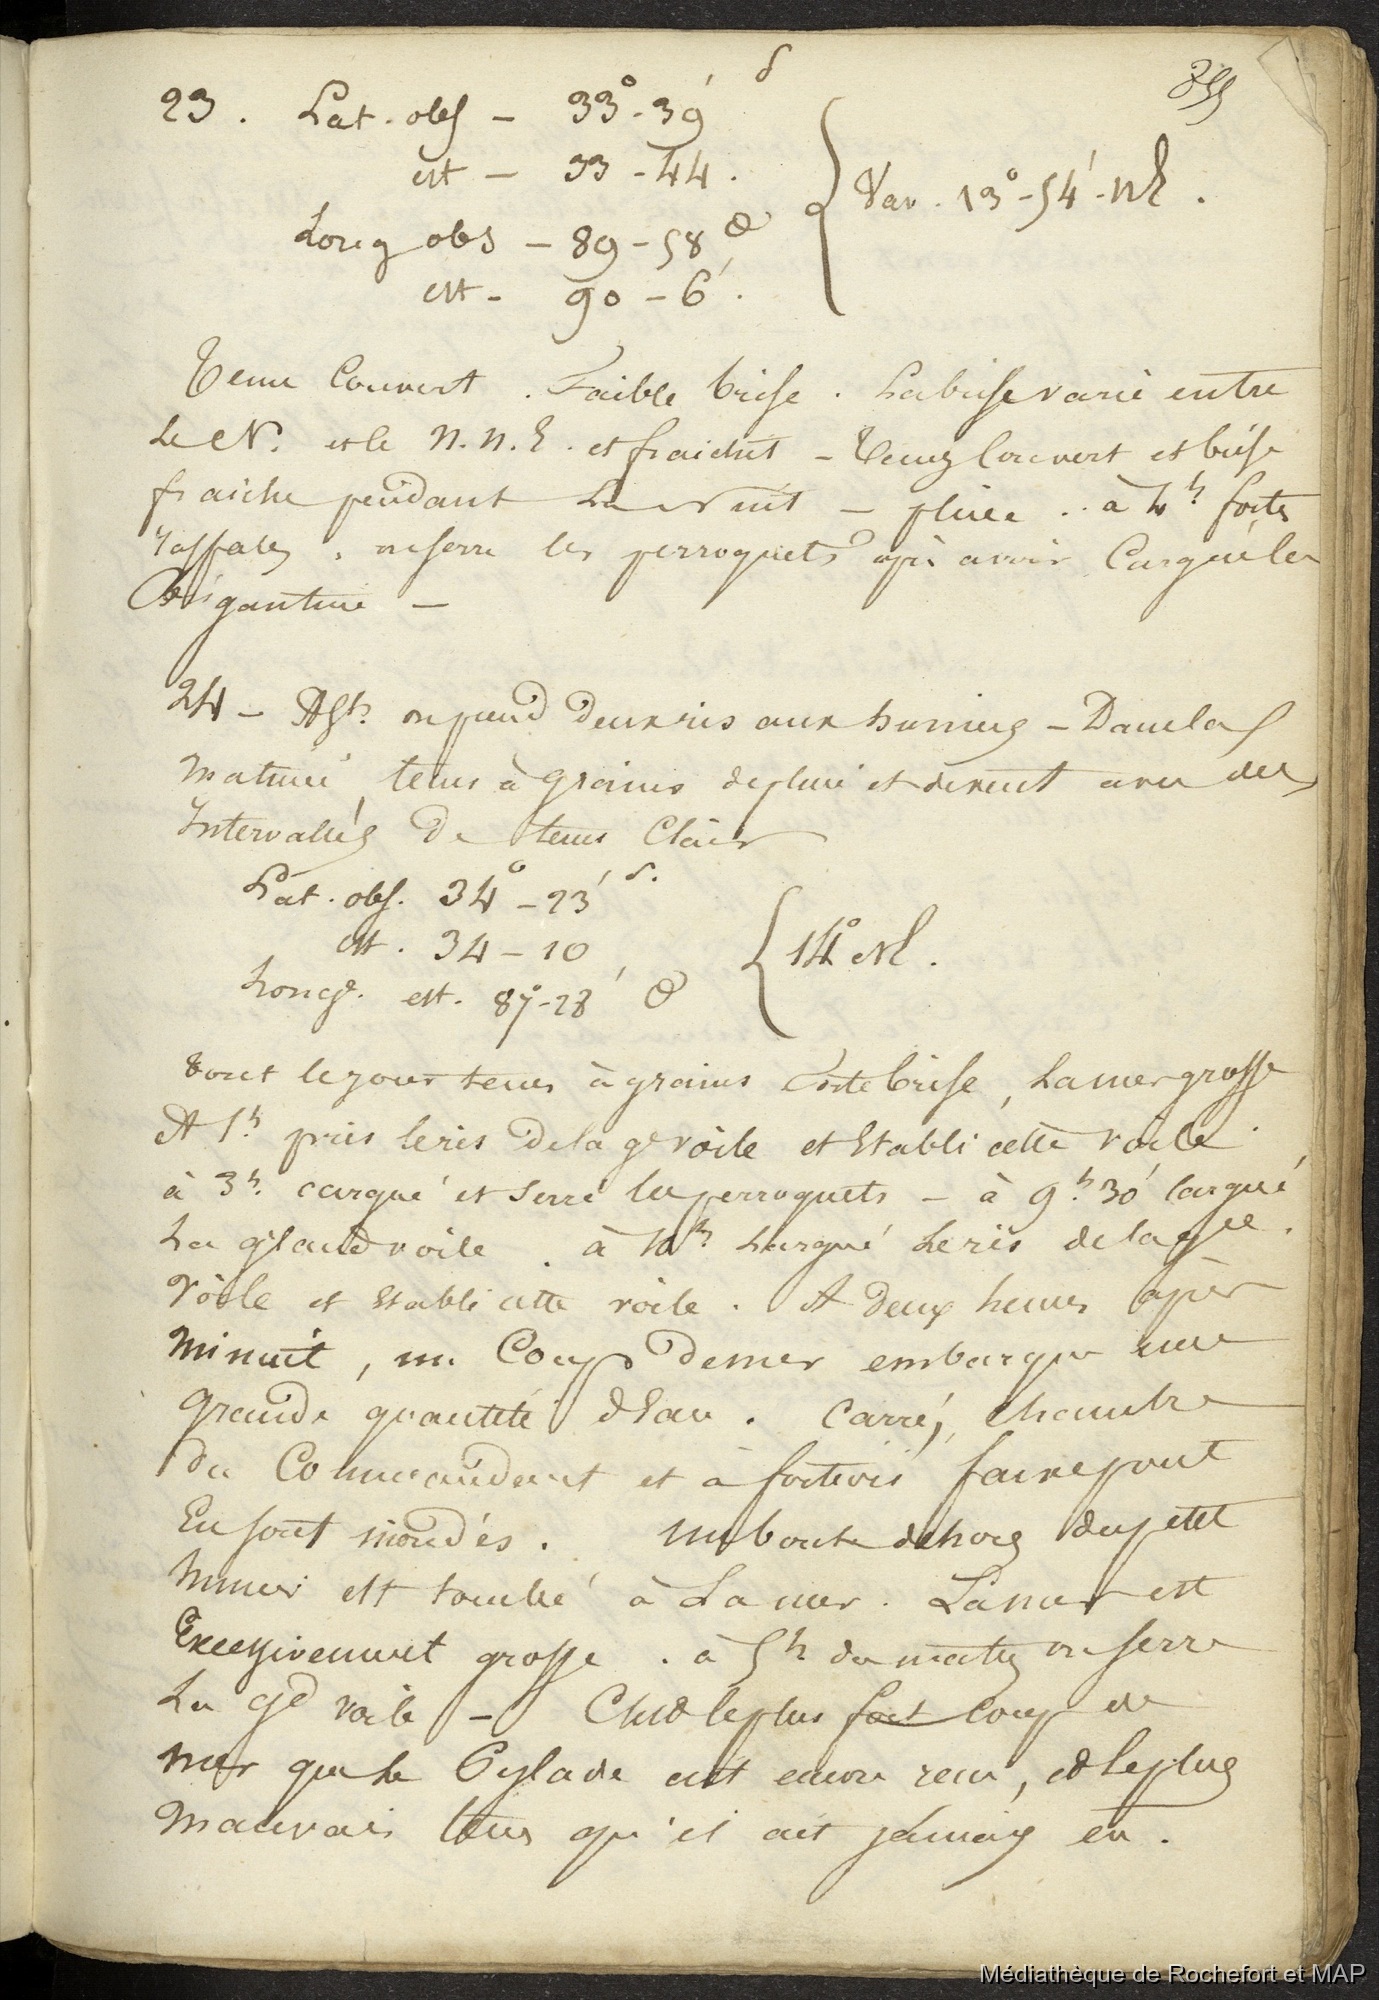 23. Lat. obs — 33° - 39' S
est — 33 - 44.
Long obs — 89 - 58' O
est - 90 - 6'.
{ Var. 13° - 54' - NE.
Tems Couvert. Faible brise. La brise varie entre
Le N. et le N.N.E. et fraichit — Tems Couvert et brise
fraiche pendant La Nuit — pluie .. à 4h fortes
raffales, on serre les perroquets après avoir Cargué la
Brigantine —
24 — A 5h. on prend Deux ris aux huniers — Dans la
matinée tems à grains de pluie et de vent avec des
Intervalles De tems Clair
Lat. obs. 34° - 23' S.
est. 34 - 10
Longe. est. 87° - 28' O
{ 14° NE.
Tout le jour tems à grains forte brise, La mer grosse
A 1h. pris le ris De la gde voile et Etabli cette voile.
à 3h. cargué et serré les perroquets — à 9h 30' Cargué
La grande voile. à 10h Largué Le ris de la gde.
Voile et Etabli cette voile. A deux heures après
Minuit, un Coup De mer embarque une
grande quantité d'Eau. Carré, Chambre
Du Commandant et à fortiori faux pont
En sont inondés. un bout dehors du petit
hunier est tombé à La mer. La mer est
Excessivement grosse. à 5h du matin on serre
La gde voile — C'est le plus fort coup de
mer que Le Pylade ait encore reçu, et le plus
Mauvais tems qu'il ait jamais eu.
Médiathèque de Rochefort et MAP